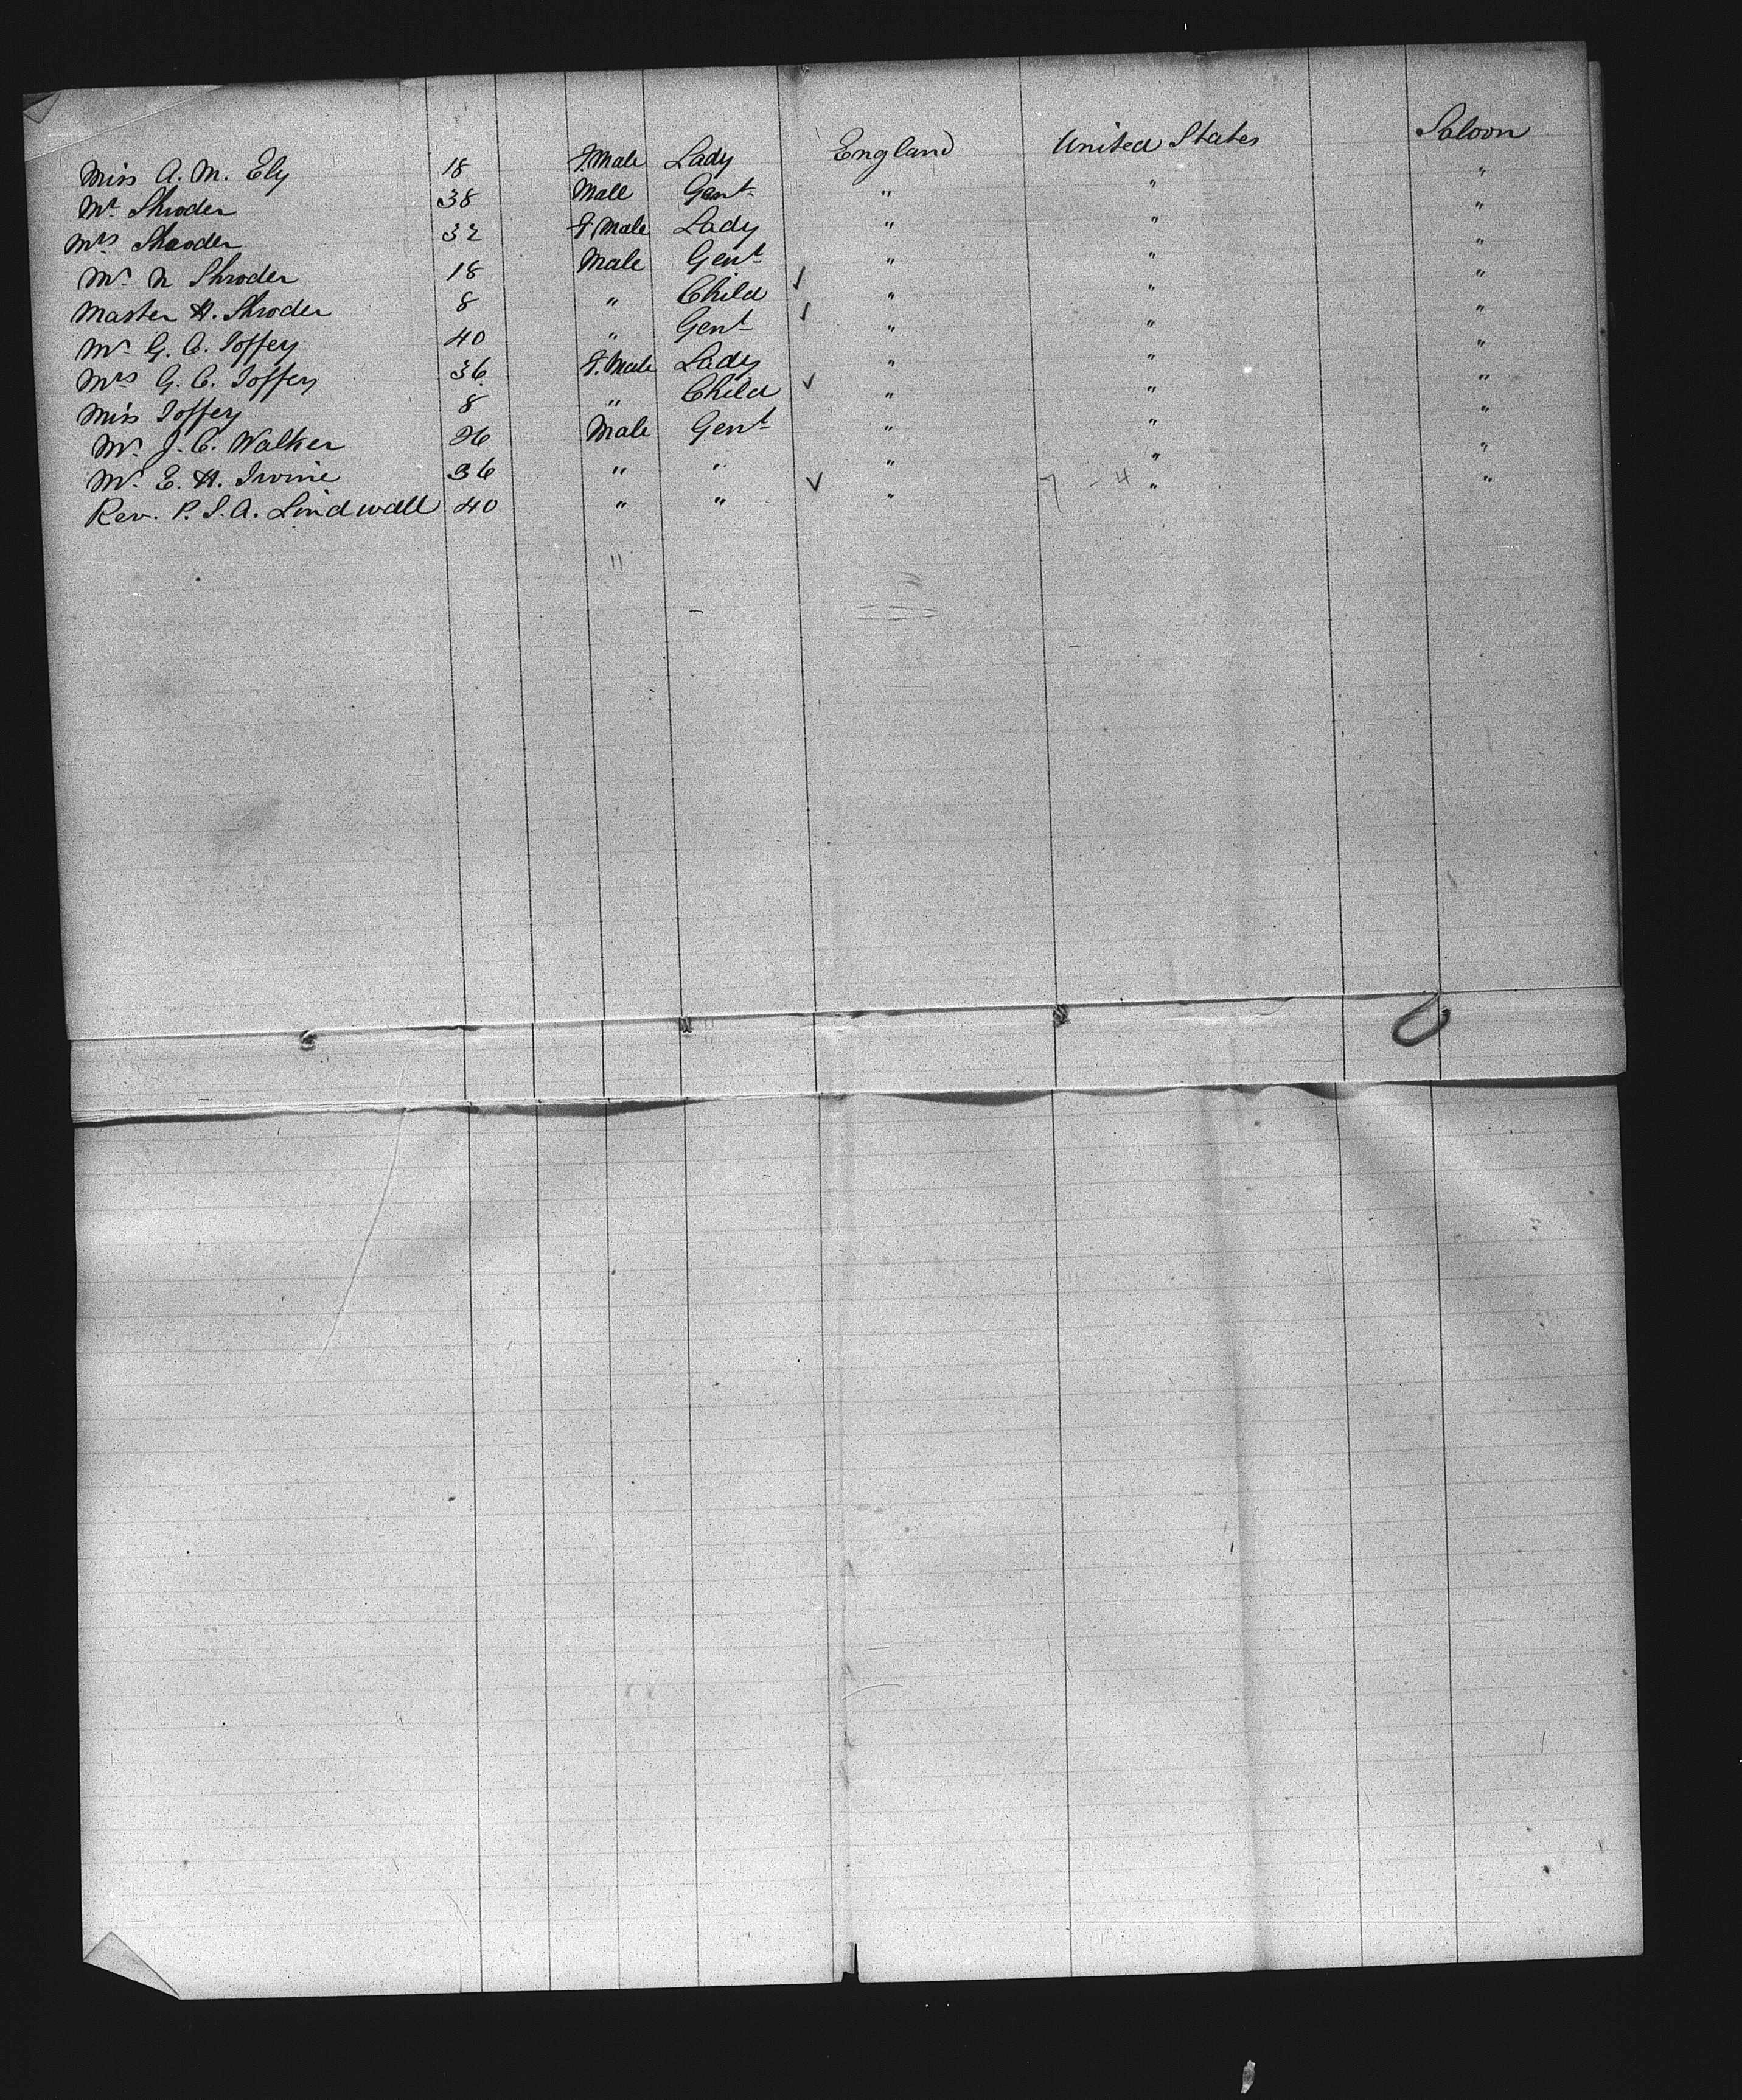 Miss A. M. Ely 18 F.Male Lady England United States Saloon
Mr. Shroder 38 Male Gent. " " "
Mrs. Shroder 32 F.Male Lady " " "
Mr. N Shroder 18 Male Gent. " " "
Master H. Shroder 8 " Child ✓ " " "
Mr. G. C. Toffey 40 " Gent. ✓ " " "
Mrs G. C. Toffey 36 F.Male Lady " " "
Miss Toffey 8 " Child ✓ " " "
Mr. J. C. Walker 26 Male Gent. " " "
Mr. E. H. Irvine 36 " " " " "
Rev. P. J. A. Lindwall 40 " " ✓ " 7 - 4 " "
"